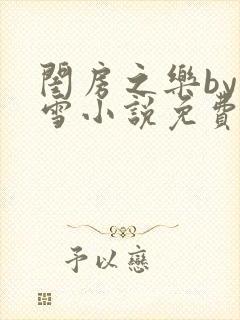 閨房之樂by
雪小說免費
予以戀